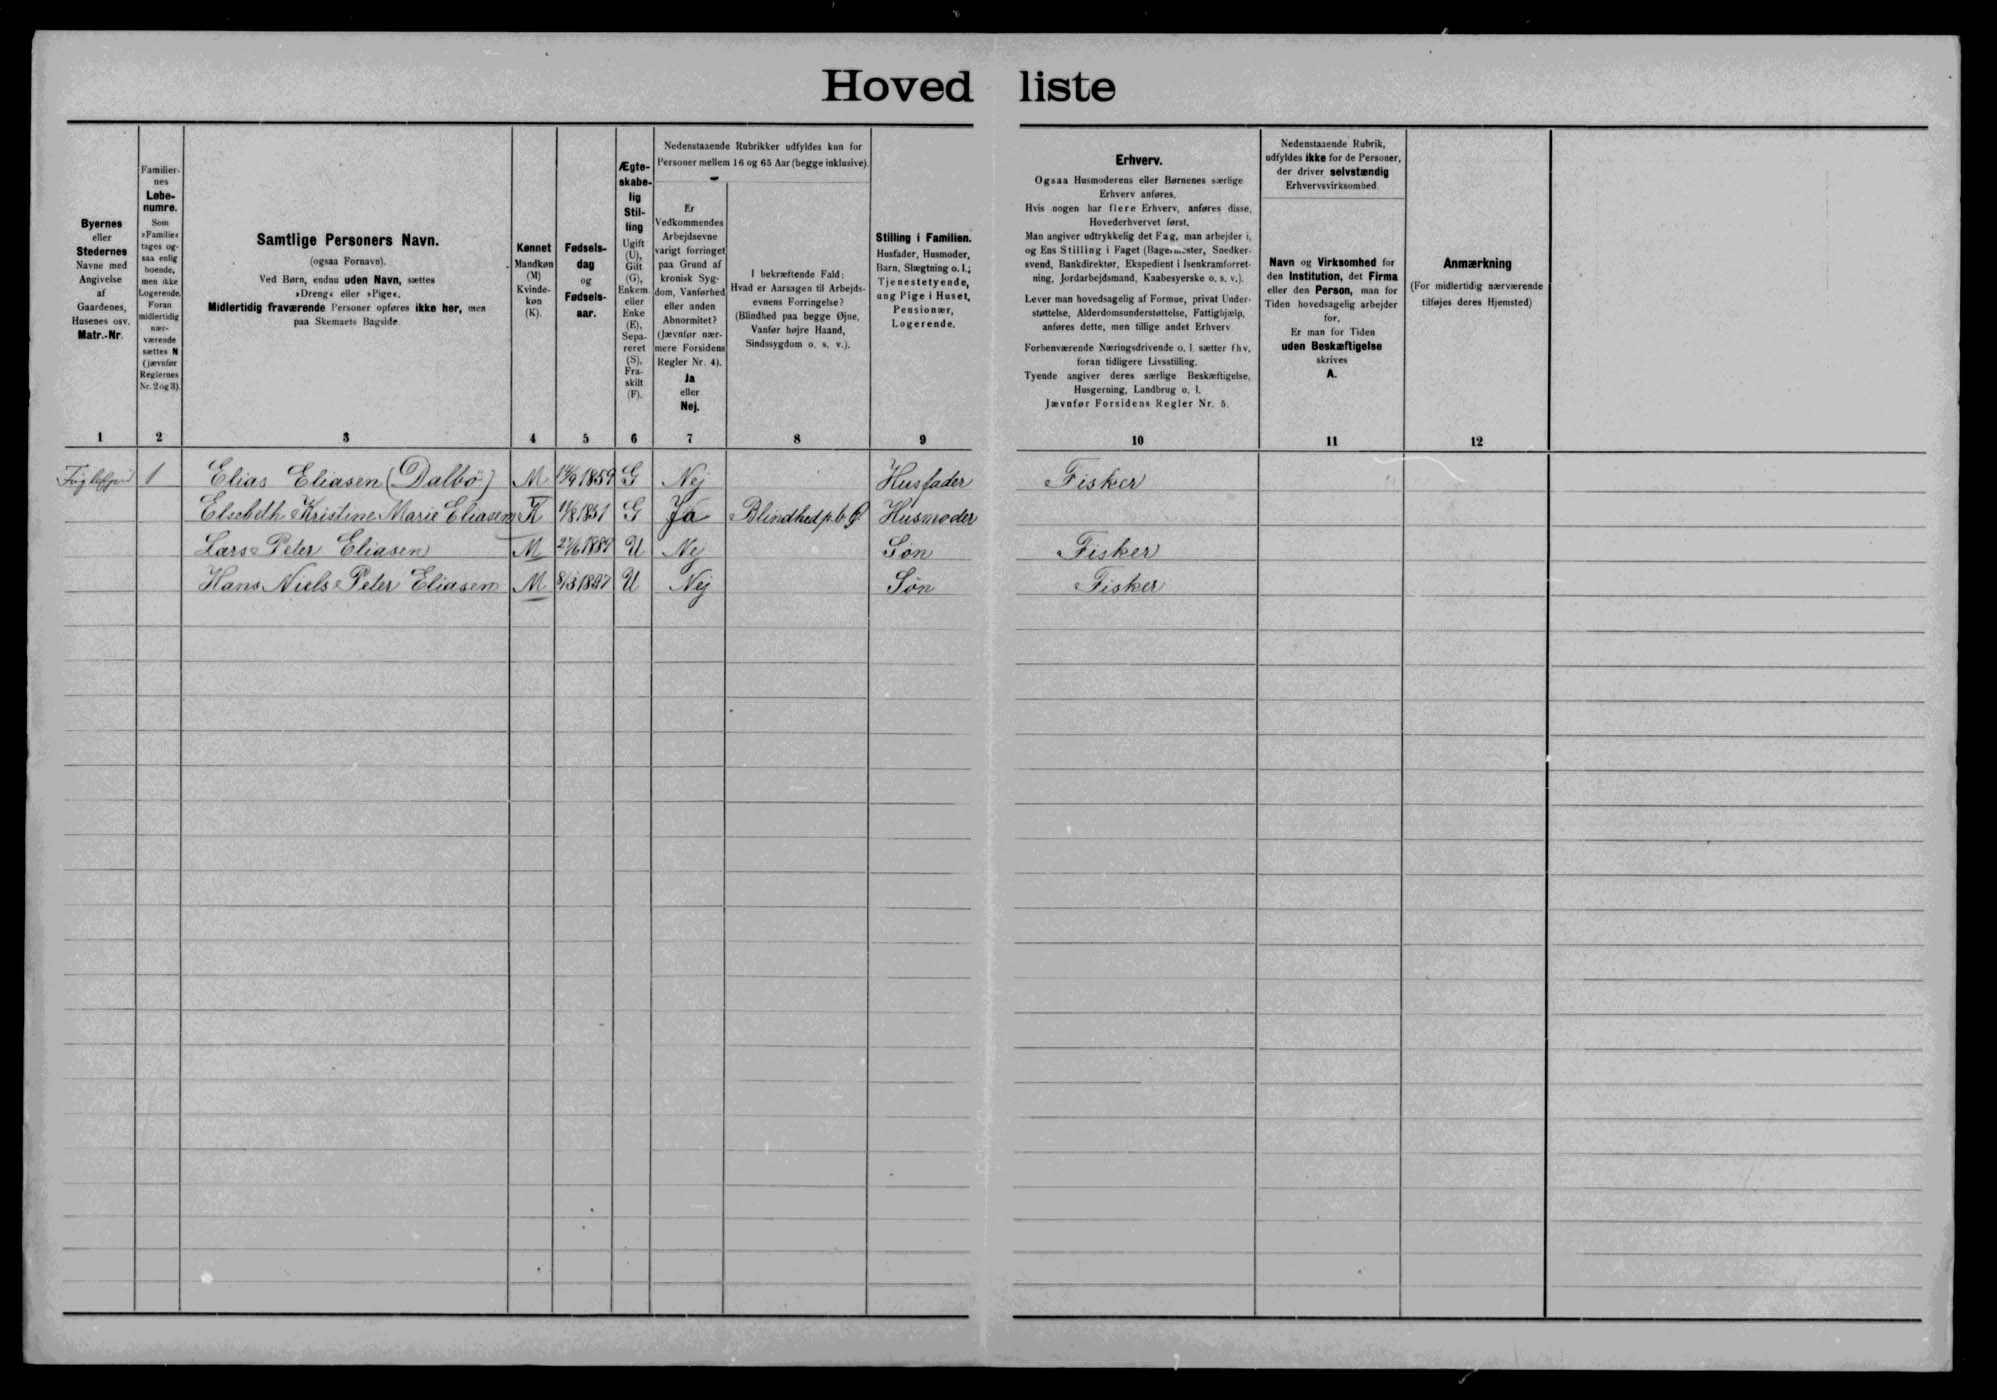 Hoved liste
Byernes
eller
Stedernes
Navne med
Angivelse
af
Gaardenes,
Husenes osv.
Matr.-Nr.
1
Familier-
nes
Løbe-
numre.
Som
»Familie«
tages og-
saa enlig
boende,
men ikke
Logerende.
Foran
midlertidig
nær-
værende
sættes N
(jævnfør
Reglernes
Nr. 2 og 3).
2
Samtlige Personers Navn.
(ogsaa Fornavn).
Ved Børn, endnu uden Navn, sættes
»Dreng« eller »Pige«.
Midlertidig fraværende Personer opføres ikke her, men
paa Skemaets Bagside.
3
Kønnet
Mandkøn
(M)
Kvinde-
køn
(K).
4
Fødsels-
dag
og
Fødsels-
aar.
5
Ægte-
skabe-
lig
Stil-
ling
Ugift
(U),
Gift
(G),
Enkem.
eller
Enke
(E),
Sepa-
reret
(S),
Fra-
skilt
(F).
6
Nedenstaaende Rubrikker udfyldes kun for
Personer mellem 16 og 65 Aar (begge inklusive).
Er
Vedkommendes
Arbejdsevne
varigt forringet
paa Grund af
kronisk Syg-
dom, Vanførhed
eller anden
Abnormitet?
(Jævnfør nær-
mere Forsidens
Regler Nr. 4).
Ja
eller
Nej.
7
I bekræftende Fald:
Hvad er Aarsagen til Arbejds-
evnens Forringelse?
(Blindhed paa begge Øjne,
Vanfør højre Haand,
Sindssygdom o. s. v.).
8
Stilling i Familien.
Husfader, Husmoder,
Barn, Slægtning o. l.;
Tjenestetyende,
ung Pige i Huset,
Pensionær,
Logerende.
9
Erhverv.
Ogsaa Husmoderens eller Børnenes særlige
Erhverv anføres.
Hvis nogen har flere Erhverv, anføres disse,
Hovederhvervet først.
Man angiver udtrykkelig det Fag, man arbejder i,
og Ens Stilling i Faget (Bagermester, Snedker-
svend, Bankdirektør, Ekspedient i Isenkramforret-
ning, Jordarbejdsmand, Kaabesyerske o. s. v.).
Lever man hovedsagelig af Formue, privat Under-
støttelse, Alderdomsunderstøttelse, Fattighjælp,
anføres dette, men tillige andet Erhverv
Forhenværende Næringsdrivende o. l. sætter fhv.
foran tidligere Livsstilling.
Tyende angiver deres særlige Beskæftigelse,
Husgerning, Landbrug o. l.
Jævnfør Forsidens Regler Nr. 5.
10
Nedenstaaende Rubrik,
udfyldes ikke for de Personer,
der driver selvstændig
Erhvervsvirksomhed.
Navn og Virksomhed for
den Institution, det Firma
eller den Person, man for
Tiden hovedsagelig arbejder
for.
Er man for Tiden
uden Beskæftigelse
skrives
A.
11
Anmærkning
(For midlertidig nærværende
tilføjes deres Hjemsted)
12
1 Elias Eliasen (Dalbö) M 1859 G Nej Husfader Fisker
Elsebeth Kristine Marie Eliasen K 1851 G Ja Blindhed p. b. Husmoder
Lars Peter Eliasen M 1884 U Nej Søn Fisker
Hans Niels Peter Eliasen M U Nej Søn Fisker